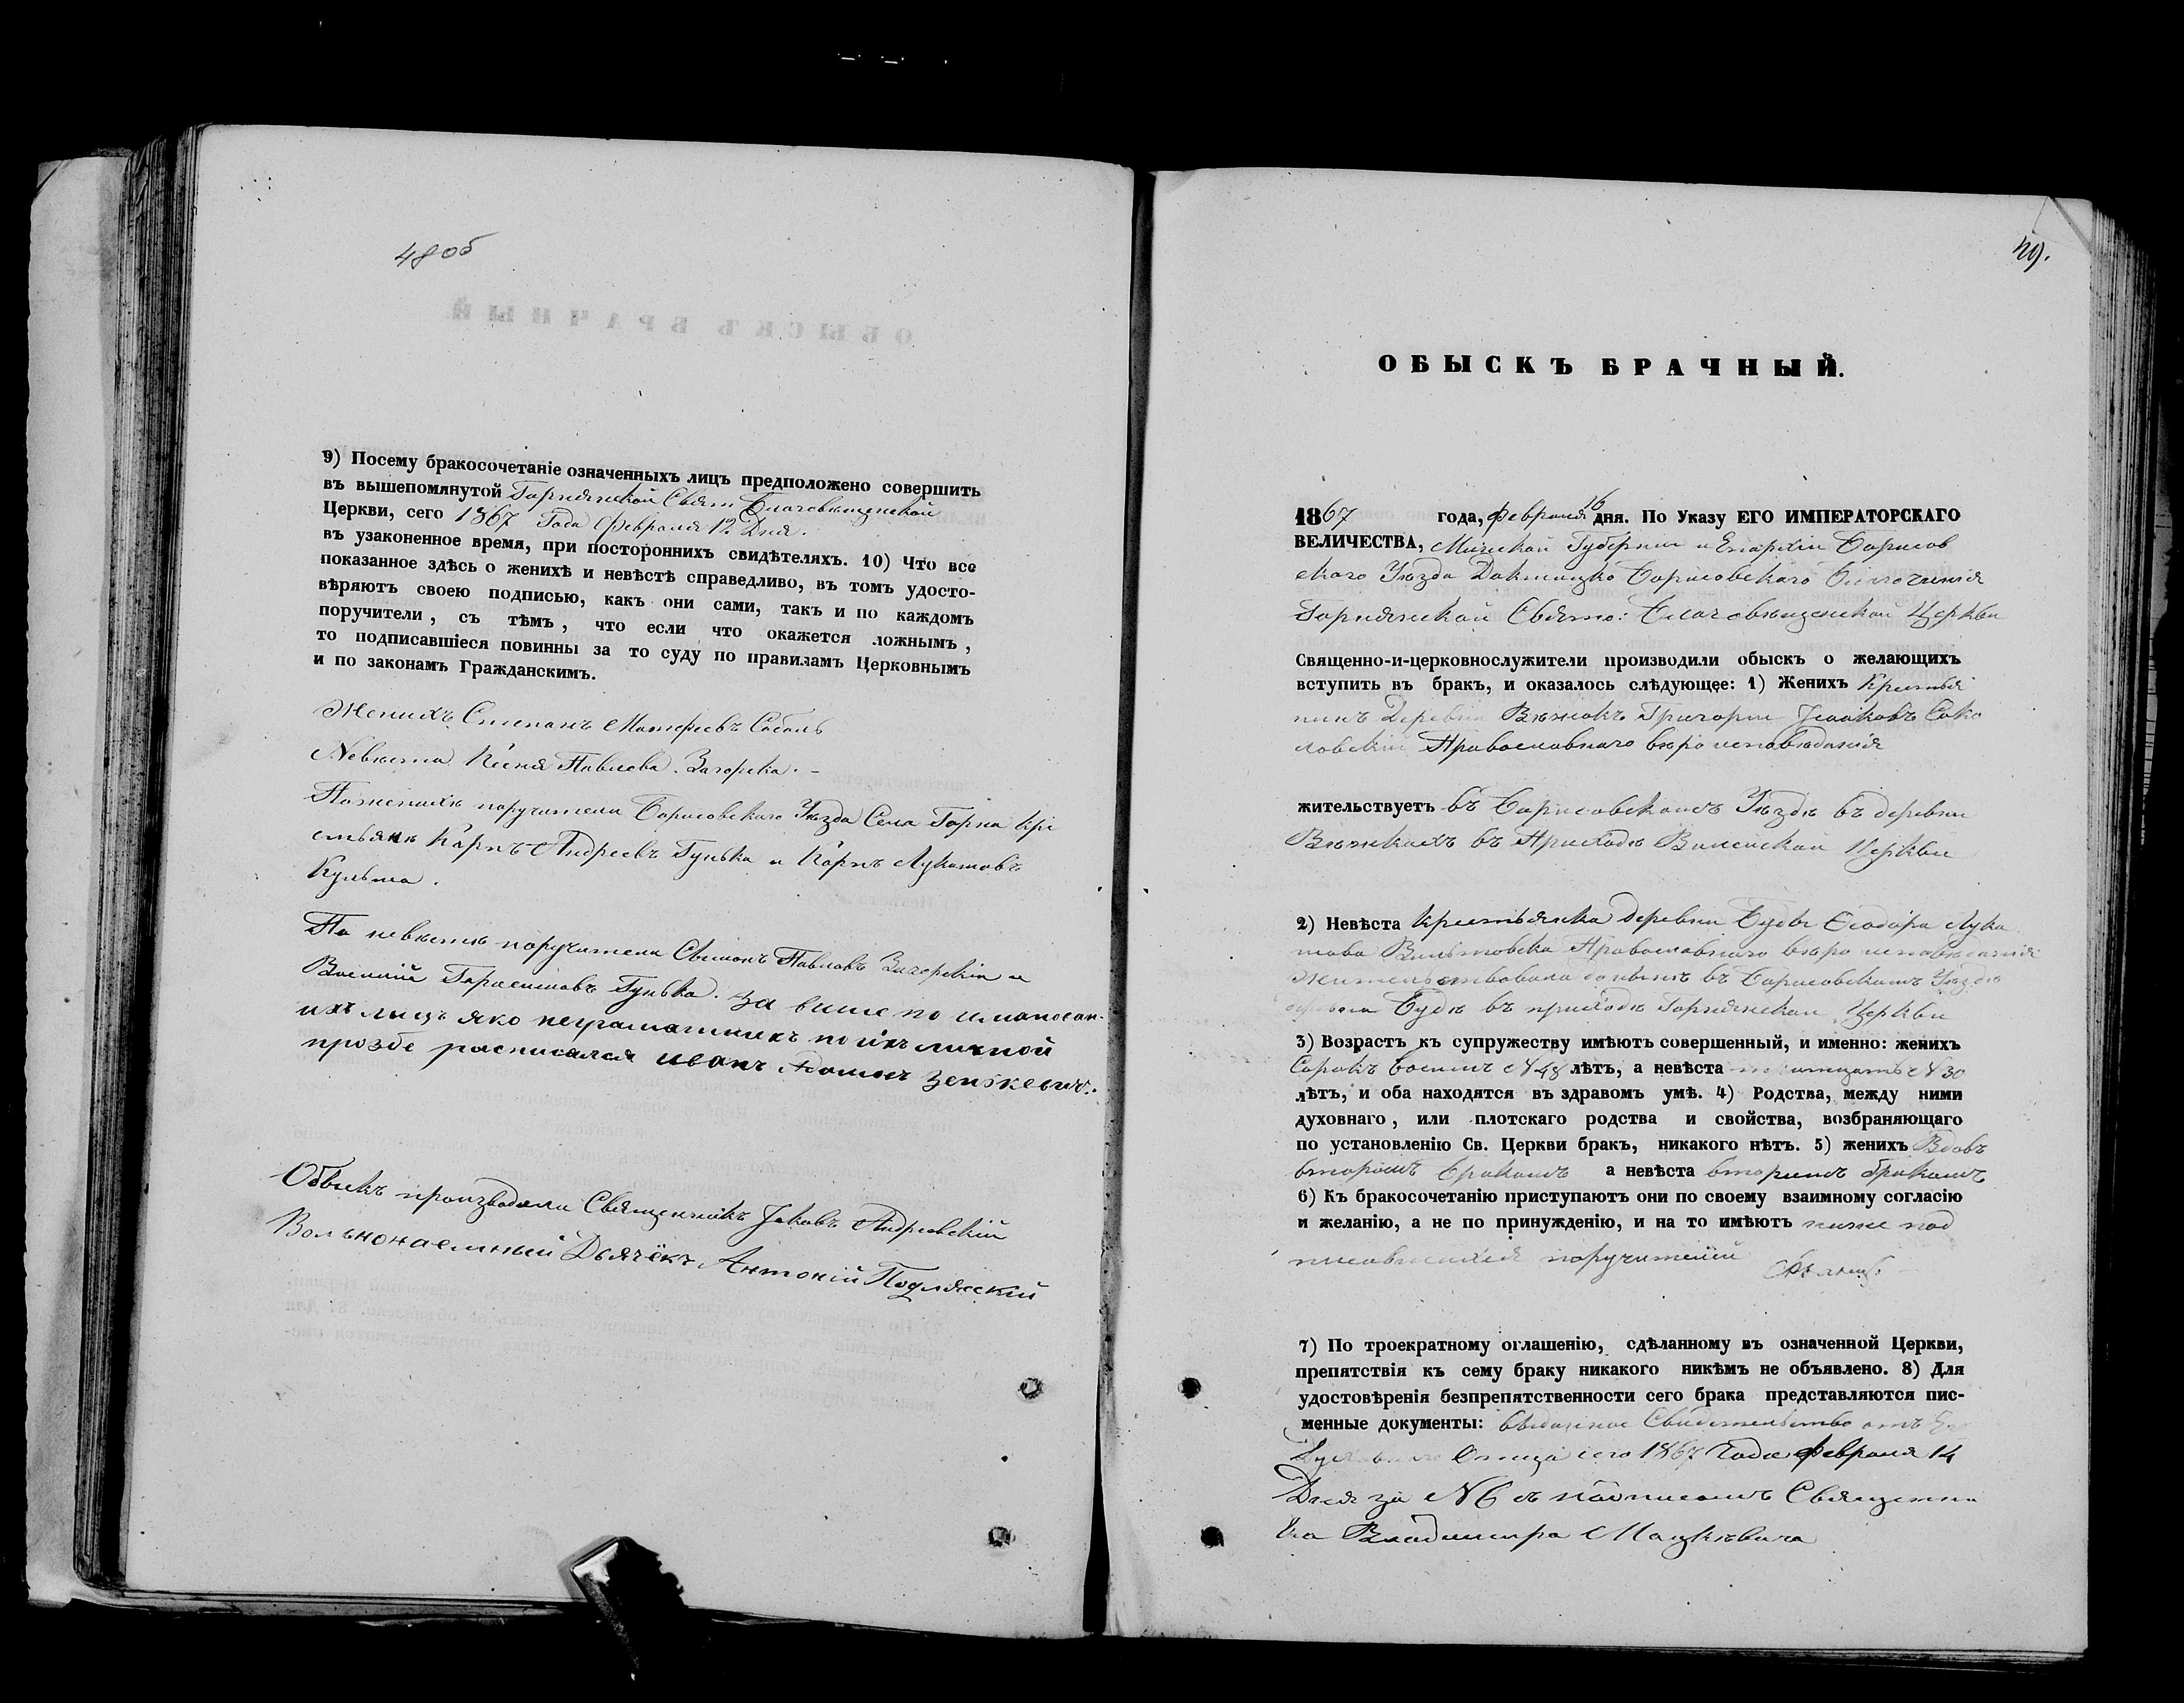 48 об
9) Посему бракосочетаніе означенныхъ лицъ предположено совершить
въ вышепомянутой Горнянской Свят Благовѣщенской
Церкви, сего 1867 Года Февраля 12 Дня.
въ узаконенное время, при постороннихъ свидѣтеляхъ. 10) Что все
показанное здѣсь о женихѣ и невѣстѣ справедливо, въ томъ удосто-
вѣряютъ своею подписью, какъ они сами, такъ и по каждомъ
поручители, съ тѣмъ, что если что окажется ложнымъ,
то подписавшіеся повинны за то суду по правиламъ Церковнымъ
и по законамъ Гражданскимъ.
Женихъ Степанъ Матфеевъ Соболь
Невѣста Ксенія Павлова Загорска. -
По женихѣ поручители Борисовскаго Уѣзда Села Горна кре
стьяне Карпъ Андреевъ Гунька и Карпъ Лукашовъ
Кульма.
По невѣстѣ поручители Симонъ Павловъ Загорскій и
Василій Гарасимовъ Гунька. За више по именован-
ихъ лицъ яко неграматнихъ по ихъ личной
прозбе росписался Иванъ Зенькевичъ.
Обыскъ производили Священникъ Іаковъ Андреевскій
Вольнонаемный Дьячёкъ Антоній Подляскій
49.
ОБЫСКЪ БРАЧНЫЙ.
1867 года, Февраля 16 дня. По Указу ЕГО ИМПЕРАТОРСКАГО
ВЕЛИЧЕСТВА, Минской Губерніи и Епархіи Борисов
скаго Уѣзда Докшицко Борисовскаго Благочинія
Горнянской Свято: Благовѣщенской Церкви
Священно-и-церковнослужители производили обыскъ о желающихъ
вступить въ бракъ, и оказалось слѣдующее: 1) Женихъ Крестья
нинъ Деревни Григорій Соко
ловскій Православнаго вѣроисповѣданія
жительствуетъ въ Борисовскомъ Уѣздѣ въ деревни
въ Приходѣ Церкви
2) Невѣста крестьянка деревни Будъ Ѳеодора Лука
шова Православнаго вѣроисповѣданія
Жительствовала въ Борисовскомъ Уѣздѣ
Будѣ въ приходѣ Горнянской Церкви
3) Возрастъ къ супружеству имѣютъ совершенный, и именно: женихъ
Сорокъ восемь N 48 лѣтъ, а невѣста тридцать N 30
лѣтъ, и оба находятся въ здравомъ умѣ. 4) Родства, между ними
духовнаго, или плотскаго родства и свойства, возбраняющаго
по установленію Св. Церкви бракъ, никакого нѣтъ. 5) женихъ Вдовъ
вторымъ бракомъ а невѣста вторымъ бракомъ
6) Къ бракосочетанію приступаютъ они по своему взаимному согласію
и желанію, а не по принужденію, и на то имѣютъ ниже под
поручителей
7) По троекратному оглашенію, сдѣланному въ означенной Церкви,
препятствія къ сему браку никакого никѣмъ не объявлено. 8) Для
удостовѣренія безпрепятственности сего брака представляются пис-
менные документы: Свидетельство отъ
Духовнаго Отца сего 1867 Года Февраля 14
Дня за N 6 съ подписомъ Священни
ка Владимира Мацкевича